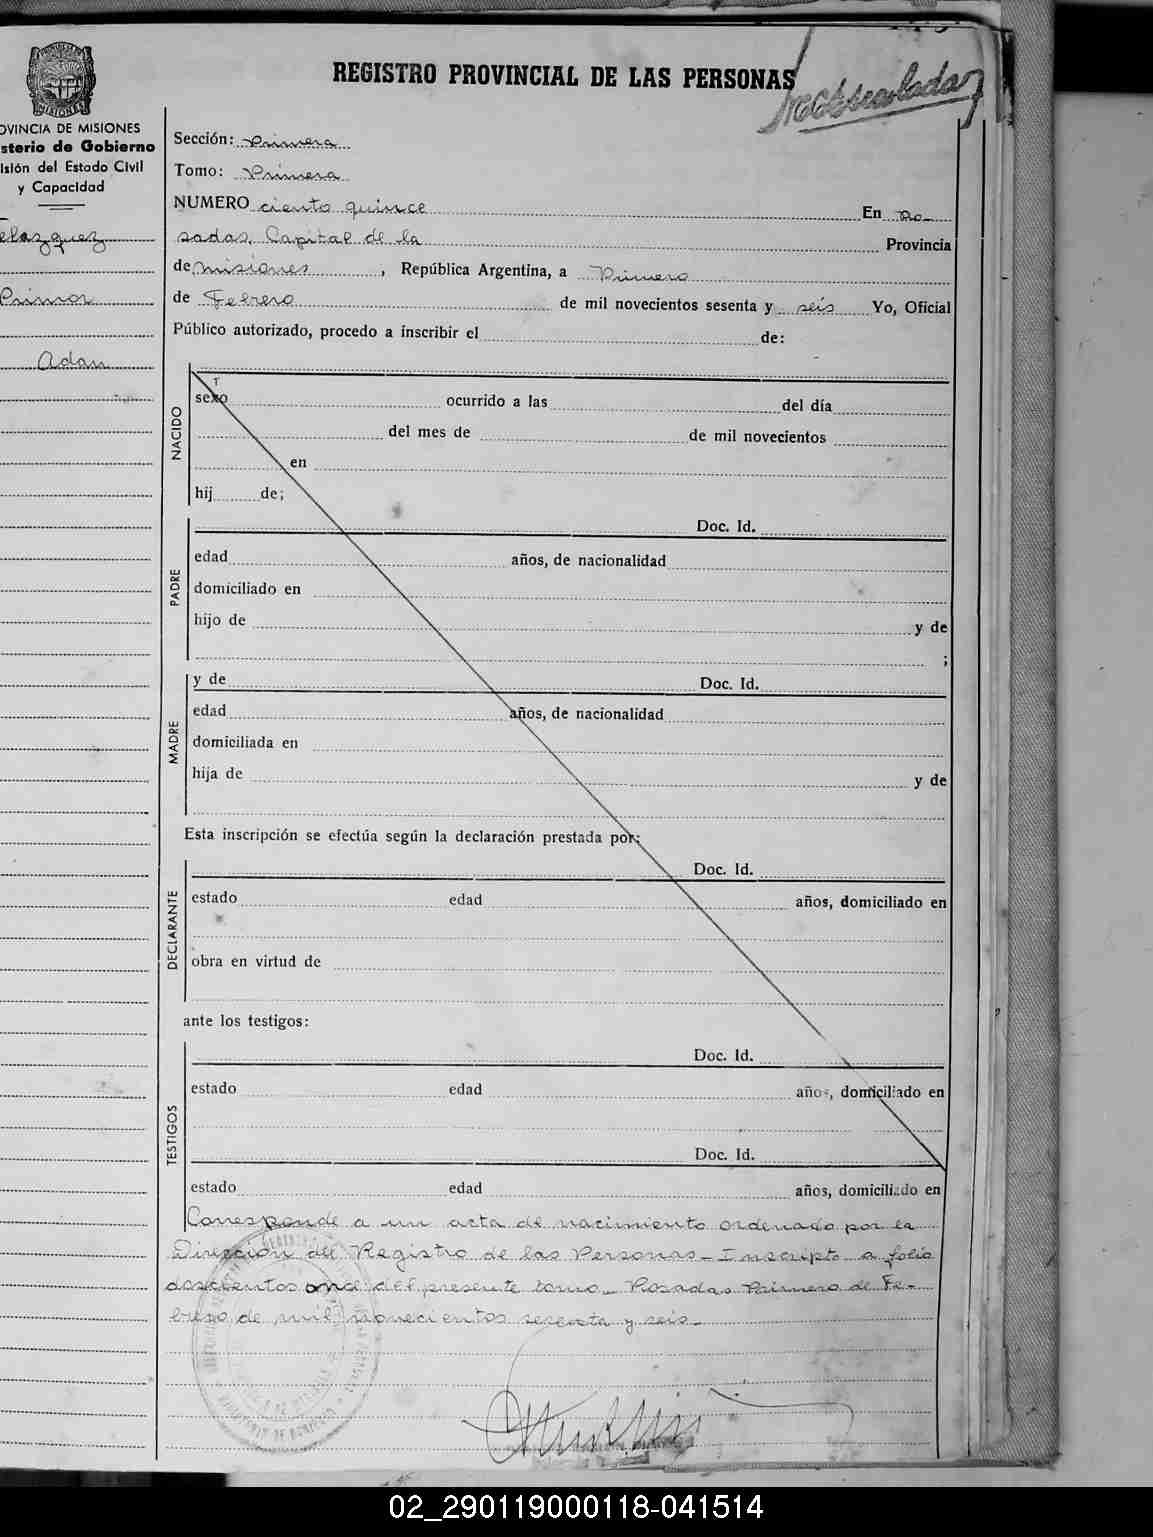 REGISTRO PROVINCIAL DE LAS PERSONAS
OVINCIA DE MISIONES
sterio de Gobierno
isión del Estado Civil
y Capacidad
elazquez
Primor
Adan
Sección: Primera
Tomo: Primera
NUMERO ciento quince En Po-
sadas, Capital de la Provincia
de misiones, República Argentina, a Primero
de Febrero de mil novecientos sesenta y seis Yo, Oficial
Público autorizado, procedo a inscribir el de:
NACIDO
sexo ocurrido a las del día
del mes de de mil novecientos
en
hij de;
PADRE
Doc. Id.
edad años, de nacionalidad
domiciliado en
hijo de y de
;
MADRE
y de Doc. Id.
edad años, de nacionalidad
domiciliada en
hija de y de
Esta inscripción se efectúa según la declaración prestada por:
DECLARANTE
Doc. Id.
estado edad años, domiciliado en
obra en virtud de
ante los testigos:
TESTIGOS
Doc. Id.
estado edad años, domiciliado en
Doc. Id.
estado edad años, domiciliado en
Corresponde a un acta de nacimiento ordenado por la
Dirección del Registro de las Personas - Inscripto a folio
doscientos once del presente tomo - Posadas Primero de Fe-
brero de mil novecientos sesenta y seis -
02_290119000118-041514